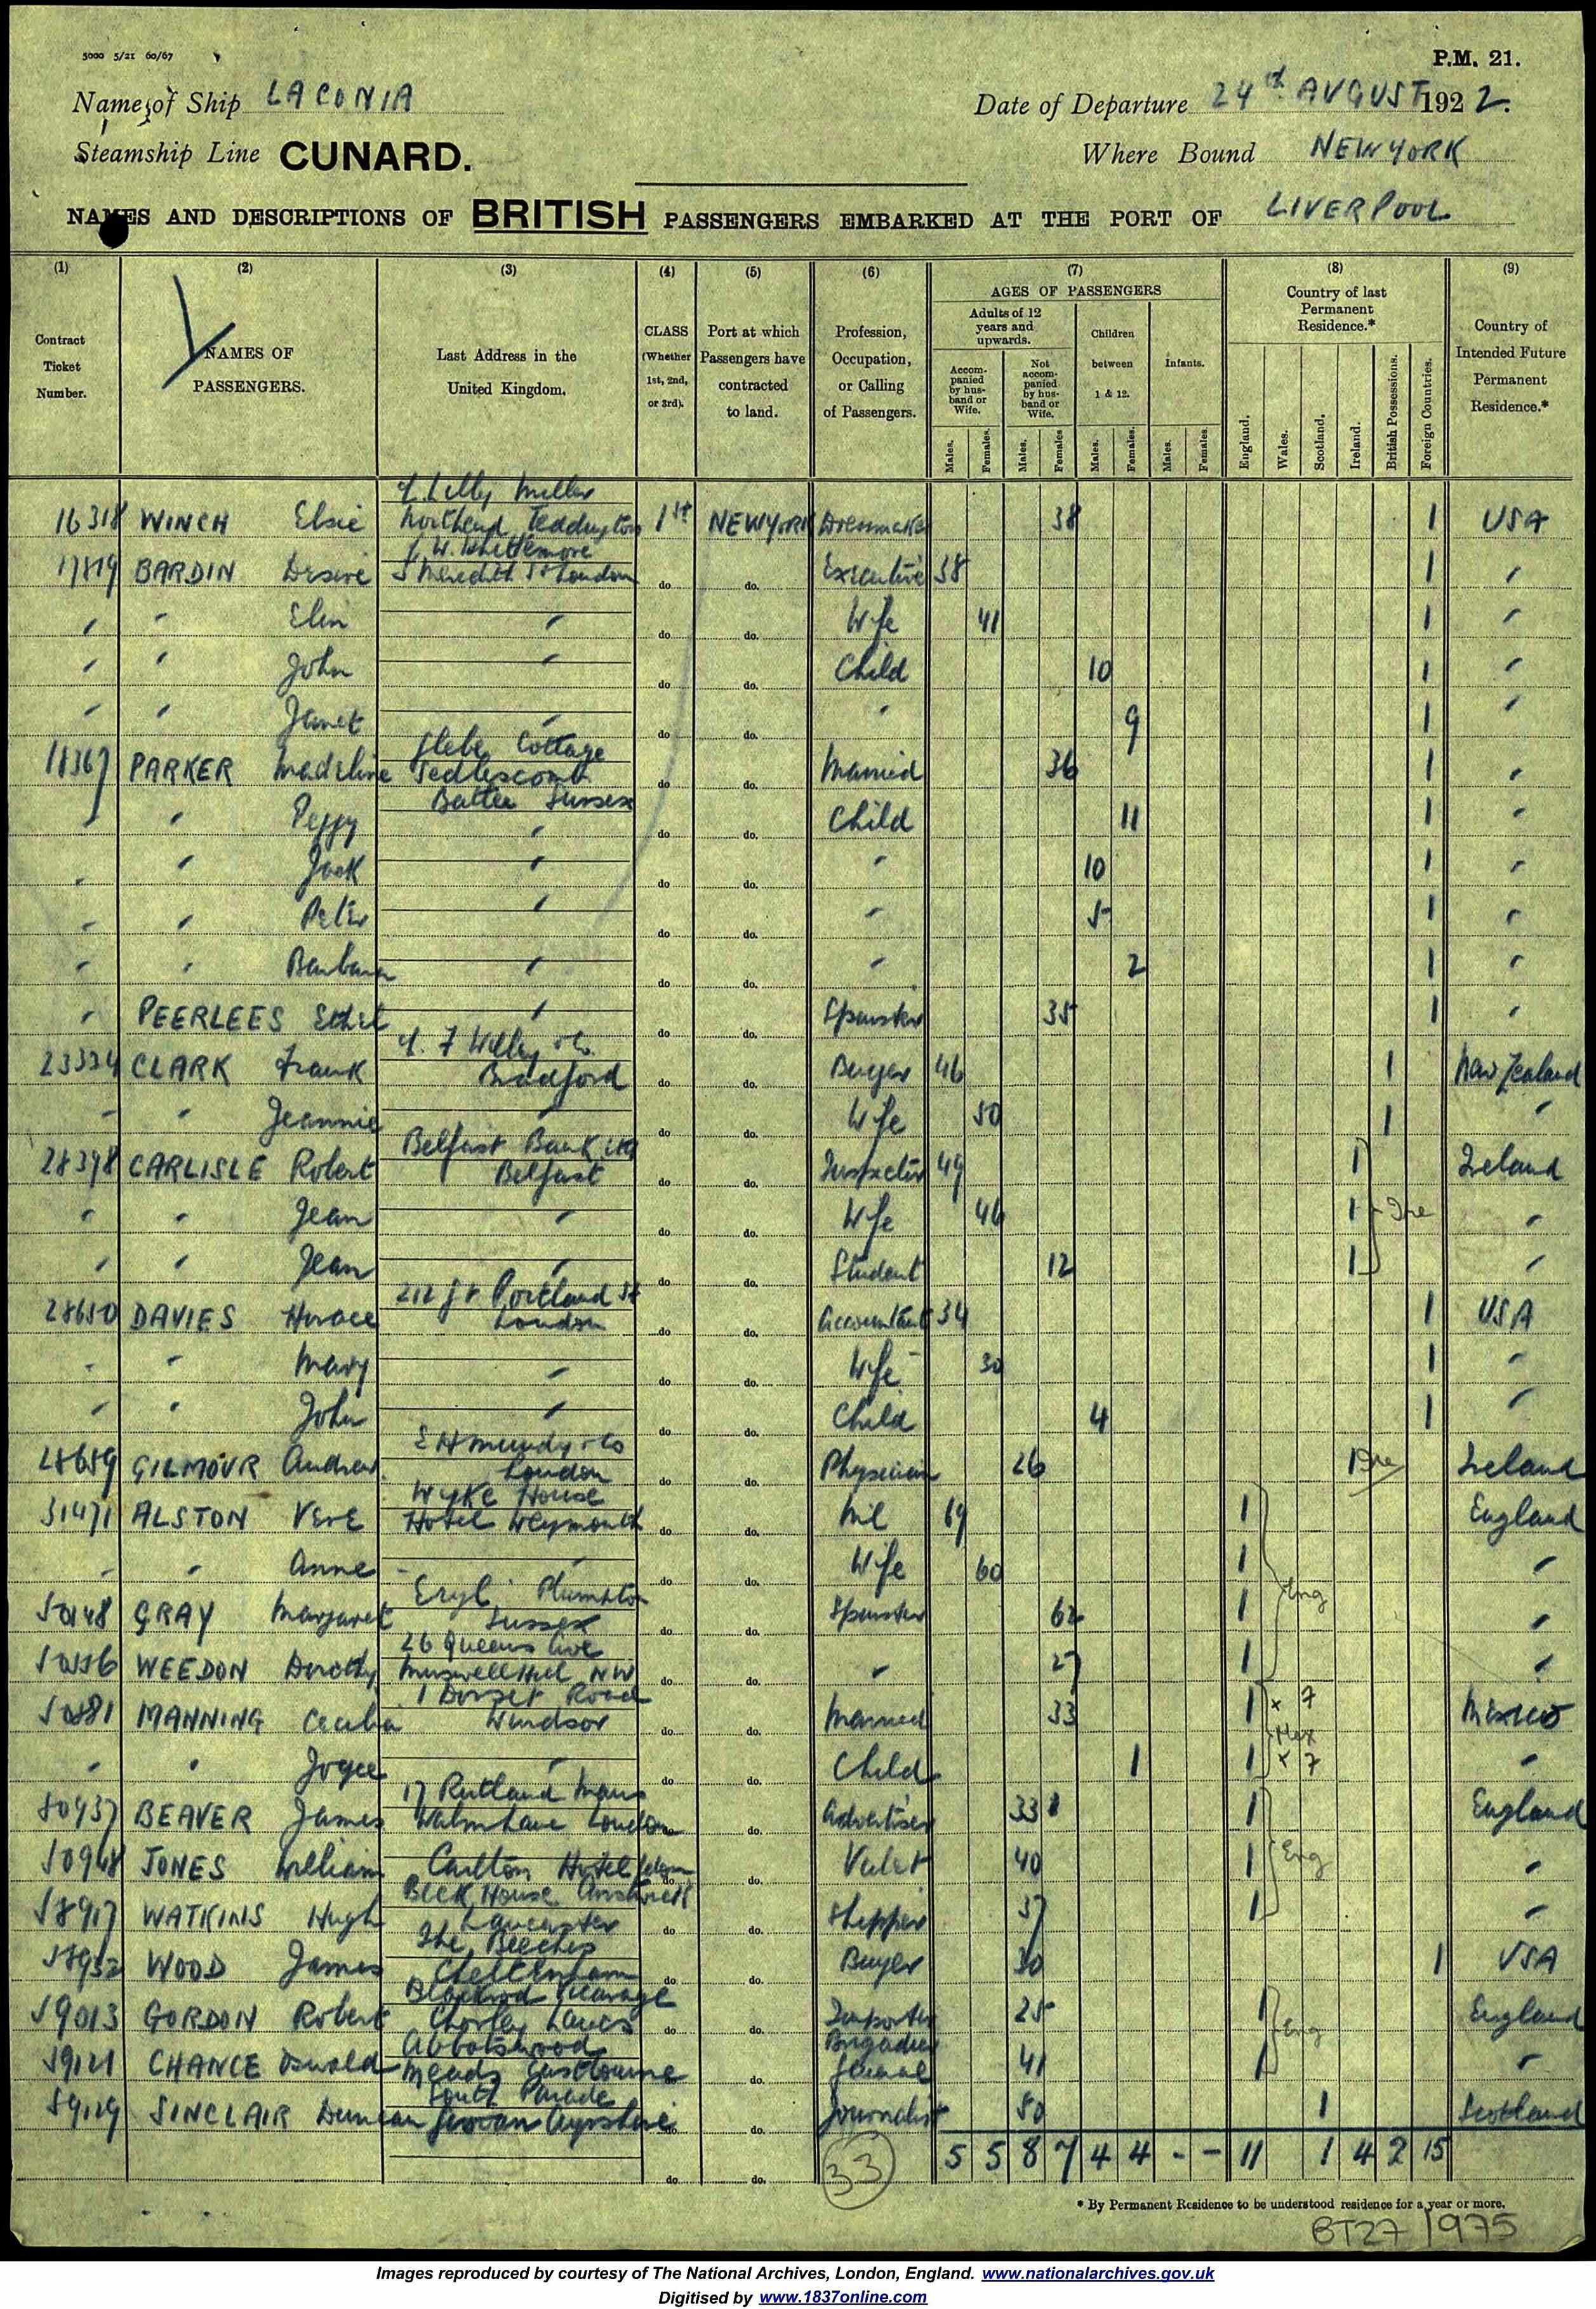 5000 5/21 60/67
P.M. 21.
Name of Ship LACONIA
Date of Departure 24th AUGUST 1922.
Steamship Line CUNARD.
Where Bound NEW YORK
NAMES AND DESCRIPTIONS OF BRITISH PASSENGERS EMBARKED AT THE PORT OF LIVERPOOL
(1) (2) (3) (4) (5) (6) (7) (8) (9)
Contract Ticket Number.
NAMES OF PASSENGERS.
Last Address in the United Kingdom.
CLASS (Whether 1st, 2nd, or 3rd).
Port at which Passengers have contracted to land.
Profession, Occupation, or Calling of Passengers.
AGES OF PASSENGERS
Adults of 12 years and upwards.
Accompanied by husband or Wife.
Not accompanied by husband or Wife.
Children between 1 & 12.
Infants.
Males. Females. Males. Females Males. Females. Males. Females
Country of last Permanent Residence.*
England. Wales. Scotland. Ireland. British Possessions. Foreign Countries.
Country of Intended Future Permanent Residence.*
Lilly Miller
16318 WINCH Elsie Teddington 1st NEW YORK Dressmaker 38 1 USA
W. Whittemore
17819 BARDIN Desire 5 Meredith St London do do. Executive 38 1 "
" " Elin " do do. Wife 41 1 "
" " John " do do. Child 10 1 "
" " Janet " do do. " 9 1 "
Glebe Cottage
18367 PARKER Madeline Sedlescomb do do. Married 36 1 "
Battle Sussex
" " Peggy " do do. Child 11 1 "
" " Jack " do do. " 10 1 "
" " Peter " do do. " 5 1 "
" " Barbara " do do. " 2 1 "
" PEERLEES Ethel " do do. Spinster 35 1 "
F Willey & Co.
23334 CLARK Frank Bradford do do. Buyer 46 1 New Zealand
" " Jeannie " do do. Wife 50 1 "
Belfast Bank Ltd
28398 CARLISLE Robert Belfast do do. Inspector 49 1 Ireland
" " Jean " do do. Wife 46 1 Ire "
" " Jean " do do. Student 12 1 "
212 Gt Portland St
28650 DAVIES Horace London do do. Accountant 34 1 USA
" " Mary " do do. Wife 30 1 "
" " John " do do. Child 4 1 "
E H Mundy & Co
28659 GILMOUR Andrew London do do. Physician 26 1 Ire Ireland
Wyke House
31471 ALSTON Vere Hotel Weymouth do do. Nil 69 1 England
" " Anne " do do. Wife 60 1 "
Plumpton
50148 GRAY Margaret Sussex do do. Spinster 62 1 Eng "
26 Queens Ave
WEEDON Dorothy Muswell Hill NW do do. " 27 1 "
1 Dorset Road
50881 MANNING Cecilia Windsor do do. Married 33 1 x 7 Mexico
Mex
" " Joyce " do do. Child 1 1 x 7 "
17 Rutland Mans
50937 BEAVER James London do do. Advertiser 33 1 England
50948 JONES William Carlton Hotel do do. Valet 40 1 Eng "
Beck House
58917 WATKINS Hugh Lancaster do do. Shipper 37 1 "
The Beeches
58952 WOOD James Cheltenham do do. Buyer 30 1 USA
Blackrod Vicarage
59013 GORDON Robert Chorley Lancs do do. Importer 25 1 Eng England
Abbotswood Brigadier
59121 CHANCE Oswald Meads Eastbourne do. General 41 1 "
South Parade
59129 SINCLAIR Duncan Girvan Ayrshire do do. Journalist 50 1 Scotland
do do. 33 5 5 8 7 4 4 - - 11 1 4 2 15
* By Permanent Residence to be understood residence for a year or more.
BT27/975
Images reproduced by courtesy of The National Archives, London, England. www.nationalarchives.gov.uk
Digitised by www.1837online.com